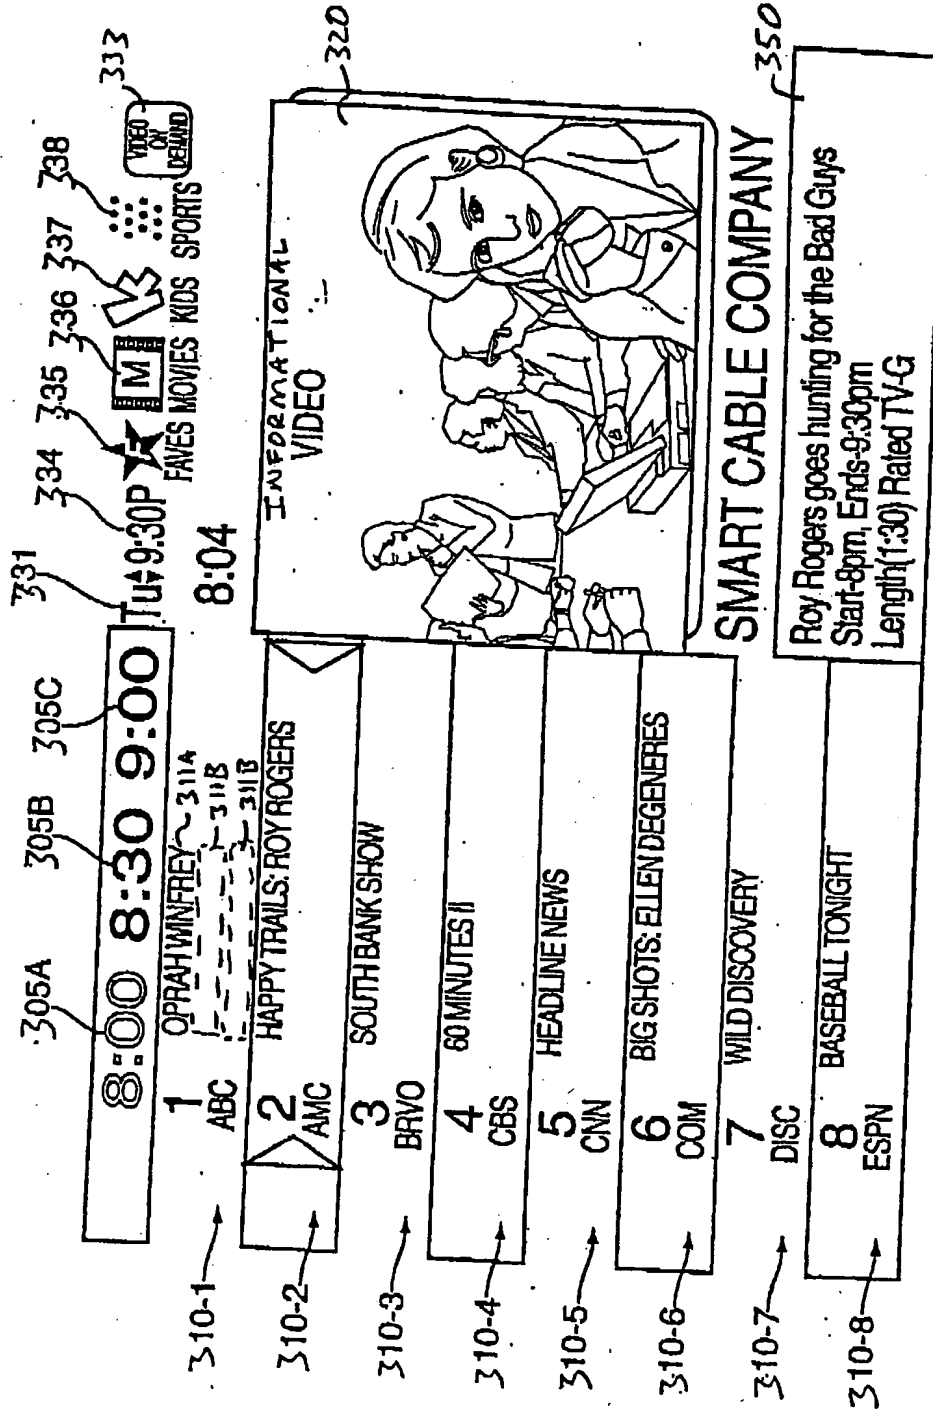 305A 305B 305C 331 334 335 336 337 338 333
8:00 8:30 9:00 Tu 9:30P F M VIDEO ON DEMAND
FAVES MOVIES KIDS SPORTS
8:04
310-1 1 ABC OPRAH WINFREY 311A
311B
311B
310-2 2 AMC HAPPY TRAILS: ROY ROGERS
310-3 3 BRVO SOUTH BANK SHOW
310-4 4 CBS 60 MINUTES II
310-5 5 CNN HEADLINE NEWS
310-6 6 COM BIG SHOTS: ELLEN DEGENERES
310-7 7 DISC WILD DISCOVERY
310-8 8 ESPN BASEBALL TONIGHT
INFORMATIONAL
VIDEO
320
SMART CABLE COMPANY
350
Roy Rogers goes hunting for the Bad Guys
Start-8pm, Ends-9:30pm
Length(1:30) Rated TV-G